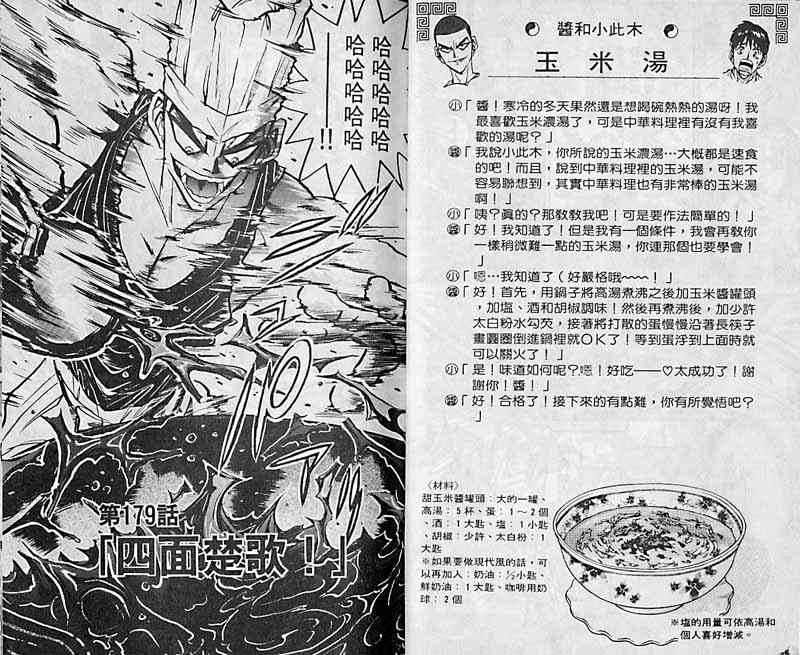 哈哈哈哈哈
哈哈哈哈哈
——!!
第179話
「四面楚歌！」
醬和小此木
玉米湯
小「醬！寒冷的冬天果然還是想喝碗熱熱的湯呀！我
最喜歡玉米濃湯了，可是中華料理裡有沒有我喜
歡的湯呢？」
醬「我說小此木，你所說的玉米濃湯…大概都是速食
的吧！而且，說到中華料理裡的玉米湯，可能不
容易聯想到，其實中華料理也有非常棒的玉米湯
啊！」
小「咦？真的？那教教我吧！可是要作法簡單的！」
醬「好！我知道了！但是我有一個條件，我會再教你
一樣稍微難一點的玉米湯，你連那個也要學會！
」
小「嗯…我知道了（好嚴格哦~~~！」
醬「好！首先，用鍋子將高湯煮沸之後加玉米醬罐頭
，加塩、酒和胡椒調味！然後再煮沸後，加少許
太白粉水勾芡，接著將打散的蛋慢慢沿著長筷子
畫圓圈倒進鍋裡就OK了！等到蛋浮到上面時就
可以關火了！」
小「是！味道如何呢？嗯！好吃——♡太成功了！謝
謝你！醬！」
醬「好！合格了！接下來的有點難，你有所覺悟吧？
」
〈材料〉
甜玉米醬罐頭：大的一罐、
高湯：5杯、蛋：1～2個
、酒：1大匙、塩：1小匙
、胡椒：少許、太白粉：1
大匙
※如果要做現代風的話，可
以再加入：奶油：½小匙、
鮮奶油：1大匙、咖啡用奶
球：2個
※塩的用量可依高湯和
個人喜好增減。